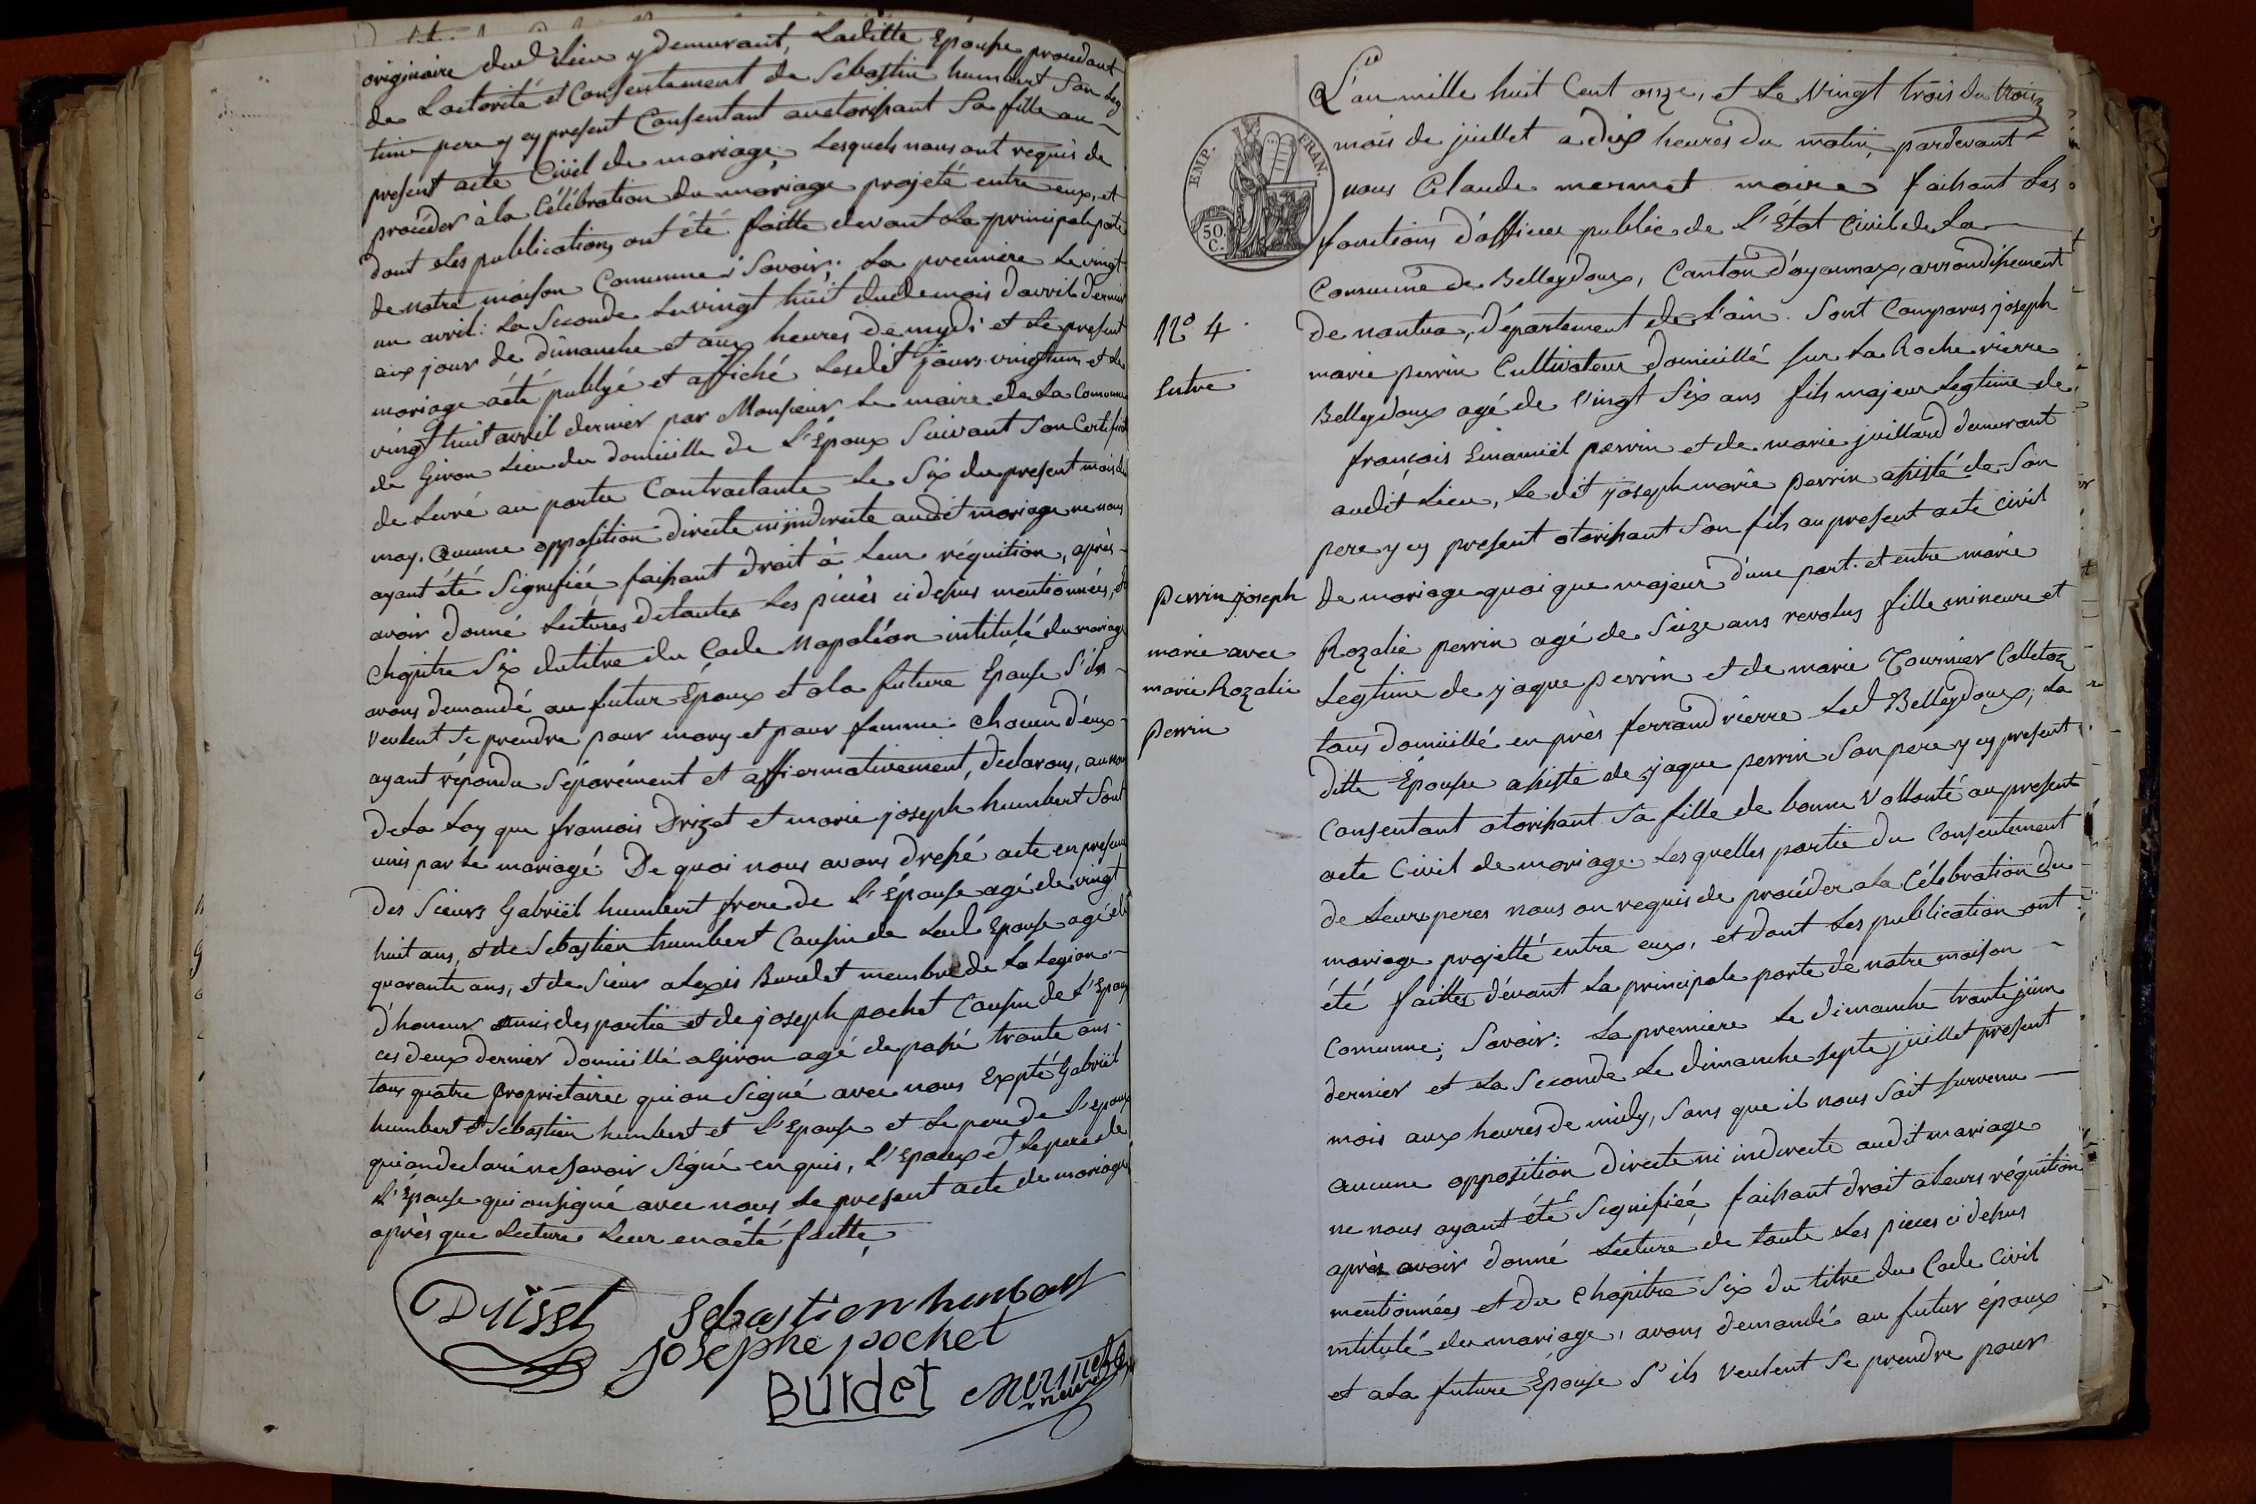 originaire dud Lieu y demeurant, Laditte Épouse procedant
de Lactorité et Consentement de Sebastin humbert Son Leg
time pere y cy present Consentant auctorisant Sa fille au
present acte Civil de mariage. Lesquels nous ont requis de
procéder à la Célébration du mariage projeté entre eux, et
dont Les publications ont été faitte devant La principale porte
de notre maison Comunne Savoir: La premiere Le vingt
un avril: La Seconde Le vingt huit dud mois d'avril dernier
aux jour de dimanche et aux heures de mydi et Le present
mariage a été publyé et affiché Lesdit jours vingt un et le
vingt huit avril dernier par Monsieur Le maire de La Comunne
de Giron Lieu du domicille de L'Époux Suivant Son Certificat
de Livré au partie Contractante Le Six du present mois de
may. aucune opposition directe ni indirecte audit mariage ne nous
ayant été Signifiée faisant droit à Leur réquition, après
avoir donné Lectures de toutes Les pièces ci dessus mentionnées, et
Chapitre Six du titre du Code Napoléon intitulé du mariage
avons demandé au futur Époux et a la future Épouse S'ils
veulent Se prendre pour mary et pour femme: chacun d'eux
ayant répondu Séparément et affirmativement, déclarons, au nom
de La Loy que francois Drizet et marie joseph humbert Sont
unis par Le mariage. De quoi nous avons dressé acte en presence
des Sieurs Gabriël humbert frere de L'Épouse agé de vingt
huit ans, et de Sebastien humbert Cousin de Lad Epouse agé de
quarante ans, et de Sieur alexis Burdet membre de La Legion
d'honeur amis des partie et de joseph pochet Cousin de L'Epoux
ces deux dernier domicillé a Giron agé de passé trante ans.
tous quatre proprietaires qui on Signé avec nous Expté Gabriël
humbert et Sebastien humbert et L'Epouse et Le pere de L'epoux
qui on declaré ne Savoir Signé en quis, L'Epoux et Le pere de
L'Épouse qui on signé avec nous Le present acte de mariage
après que Lecture Leur en a été faitte
Sebastien humbert
josephe pochet
Burdet
mermet
maire
EMP. FRAN.
50. C.
L'an mille huit Cent onze, et Le Vingt trois du
mois de juillet a dix heures du matin, pardevant
nous Claude mermet maire faisant Les
fonctions d'officier public de L'État Civil de La
Comunne de Belleydoux, Canton d'oyonnax, arrondissement
N° 4
de nantua, département de L'ain. Sont Comparus joseph
marie perrin Cultivateur domicillé Sur La Roche rierre
Entre
Belleydoux agé de Vingt Six ans fils majeur Legtime de
françois Emanuël perrin et de marie juillard demeurant
audit Lieu, Le dit joseph marie perrin assisté de Son
pere y cy present otorisant Son fils au present acte civil
perrin joseph
de mariage quoi que majeur d'une part. et entre marie
marie avec
Rozalie perrin agé de Seize ans revolus fille mineure et
marie Rozalie
Legtime de jaque perrin et de marie Tournier Colletaz
perrin
tous domicillé en près ferrand rierre Led Belleydoux; La
ditte Épouse assisté de jaque perrin Son pere y cy present
Consentant otorisant Sa fille de bonne Vollonté au present
acte Civil de mariage. Les quelles partie du Consentement
de Leurs peres nous on requis de procéder a La Célébration du
mariage projetté entre eux, et dont Les publication ont
été faittes devant La principale porte de notre maison
Comunne; Savoir: La premiere Le dimanche trante juin
dernier et La Seconde Le dimanche Septe juillet present
mois aux heures de midy, Sans que il nous Soit Survenu
aucune opposition directe ni indirecte audit mariage
ne nous ayant été Signifiée, faisant droit a Leurs réquition
après avoir donné Lecture de toute Les pieces ci dessus
mentionnées et du Chapitre Six du titre du Code Civil
intitulé du mariage, avons demandé au futur époux
et a La future Épouse S'ils veulent Se prendre pour